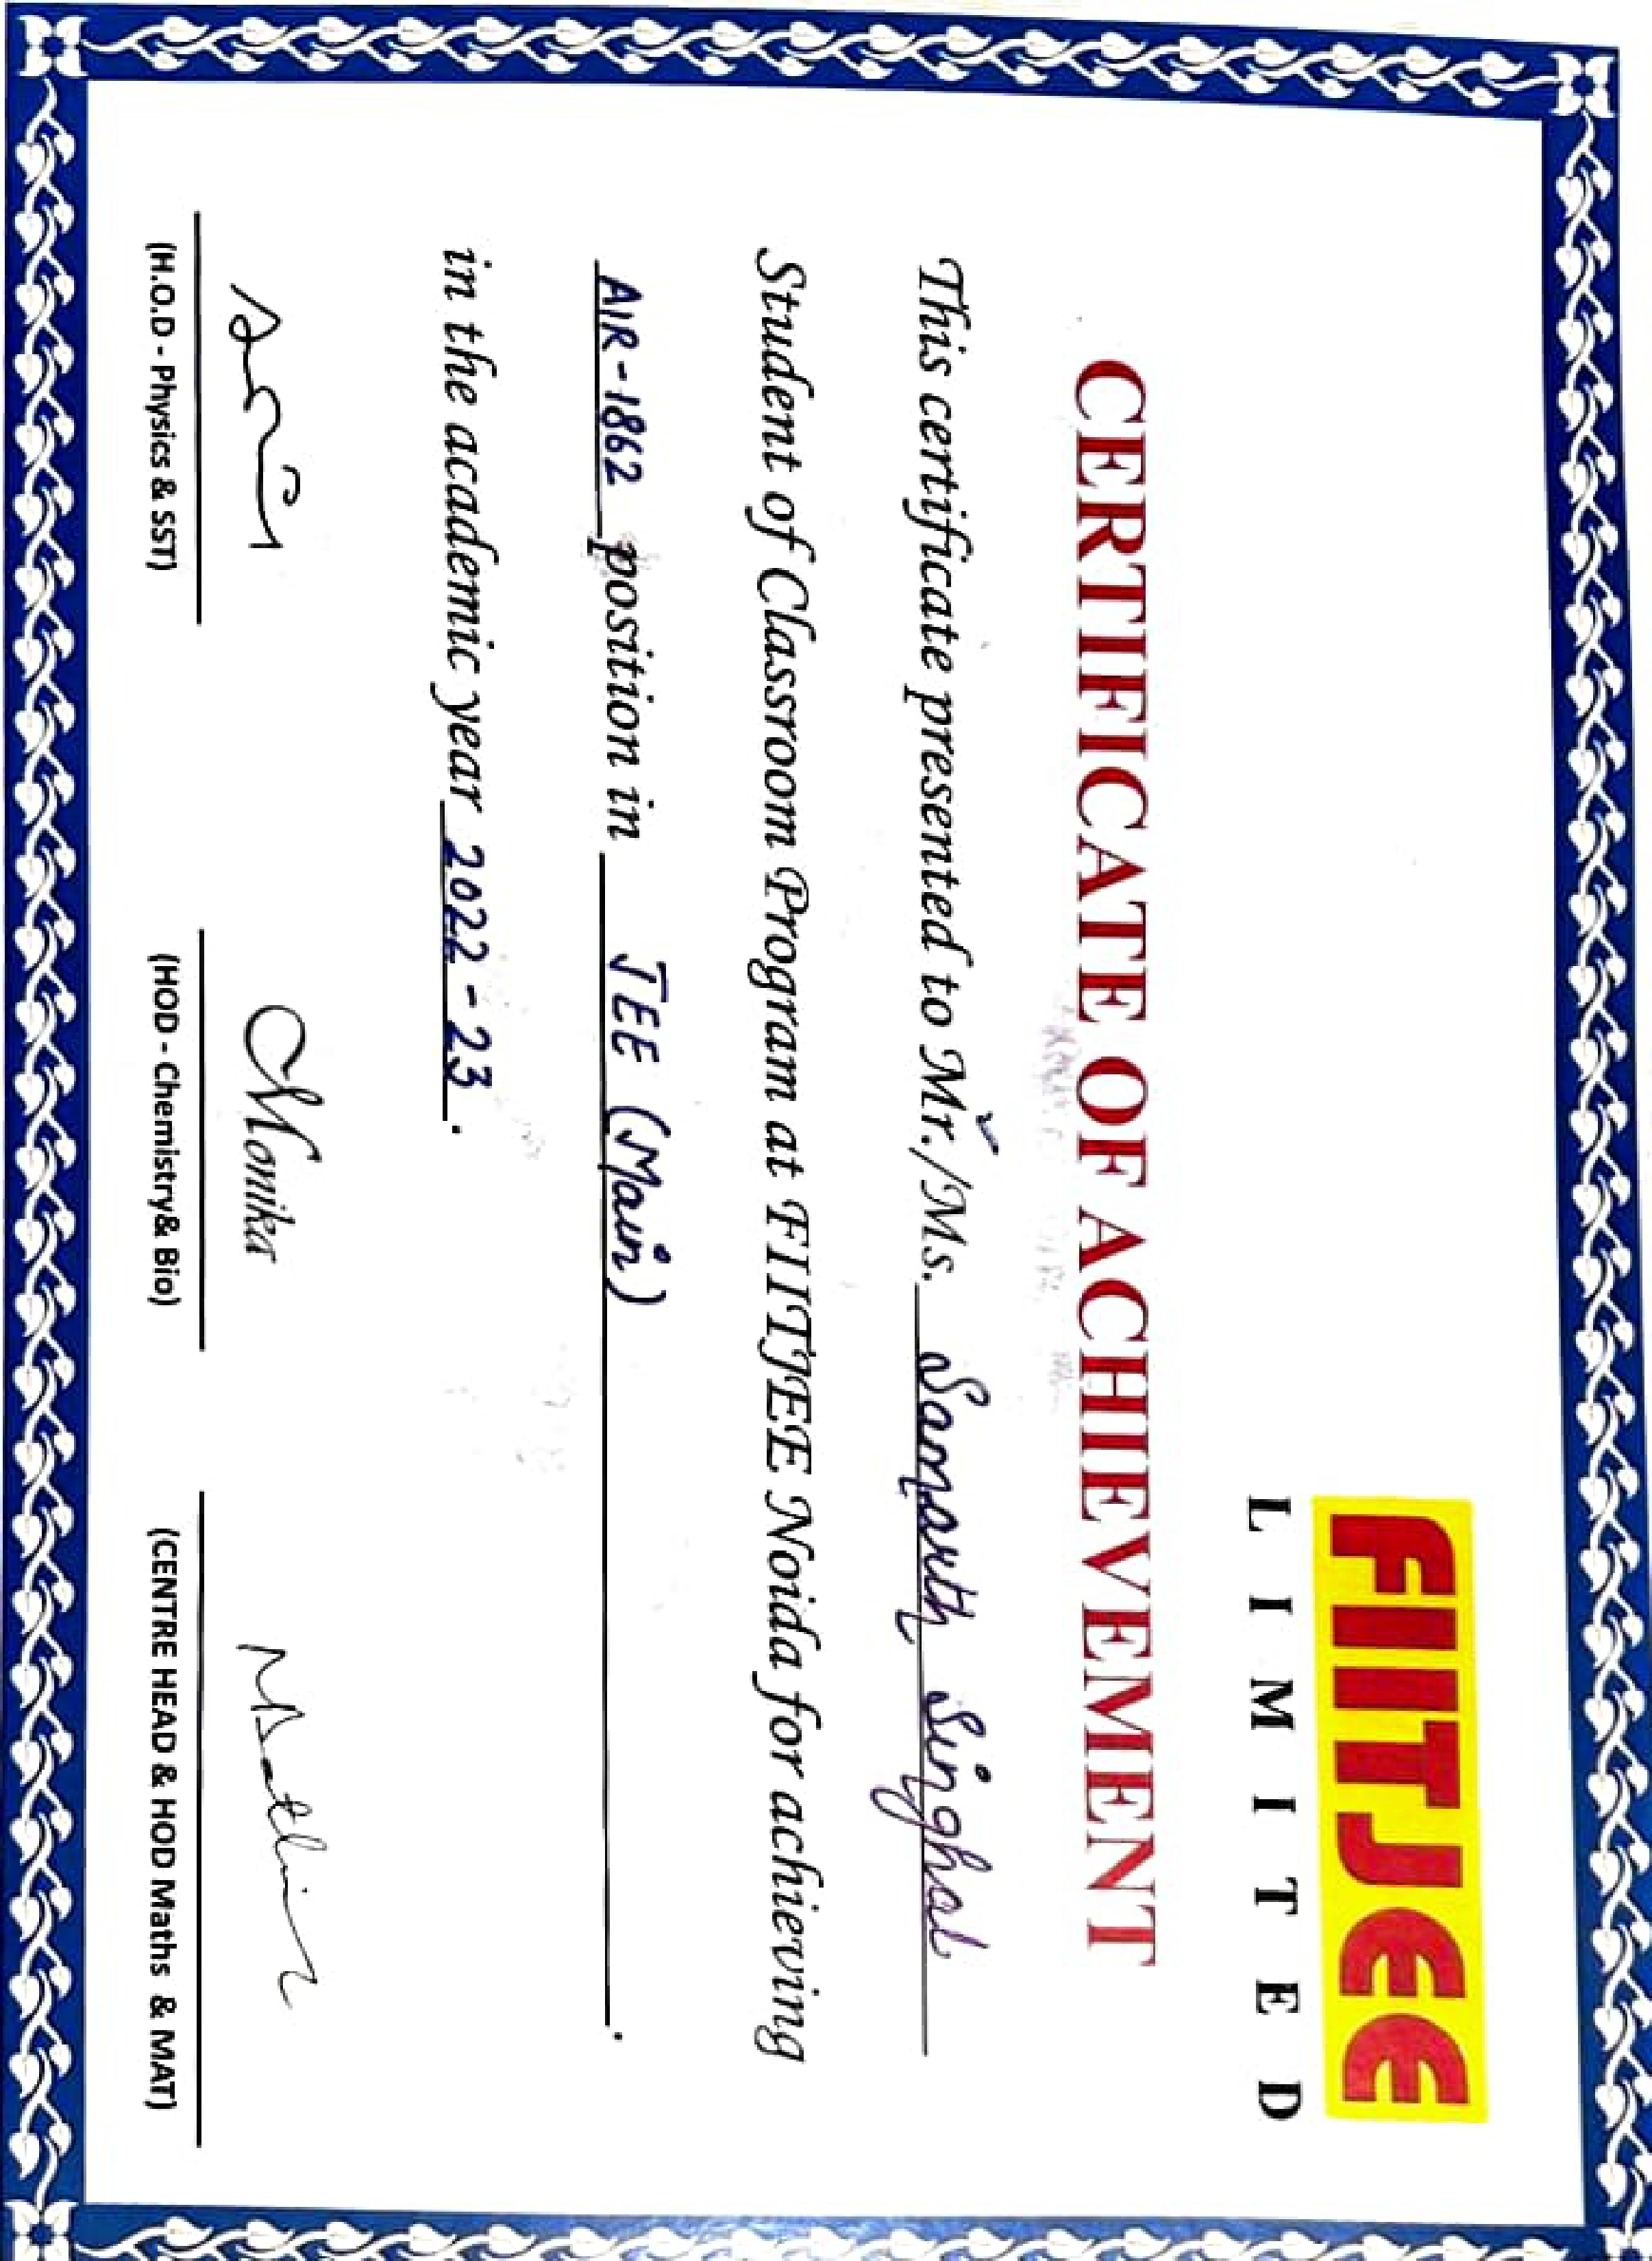 FIITJEE
LIMITED
CERTIFICATE OF ACHIEVEMENT
This certificate presented to Mr./Ms. Samarth Singhal
Student of Classroom Program at FIITJEE Noida for achieving
AIR-1862 position in JEE (Main) .
in the academic year 2022-23 .
Monika
(H.O.D - Physics & SST) (HOD - Chemistry& Bio) (CENTRE HEAD & HOD Maths & MAT)